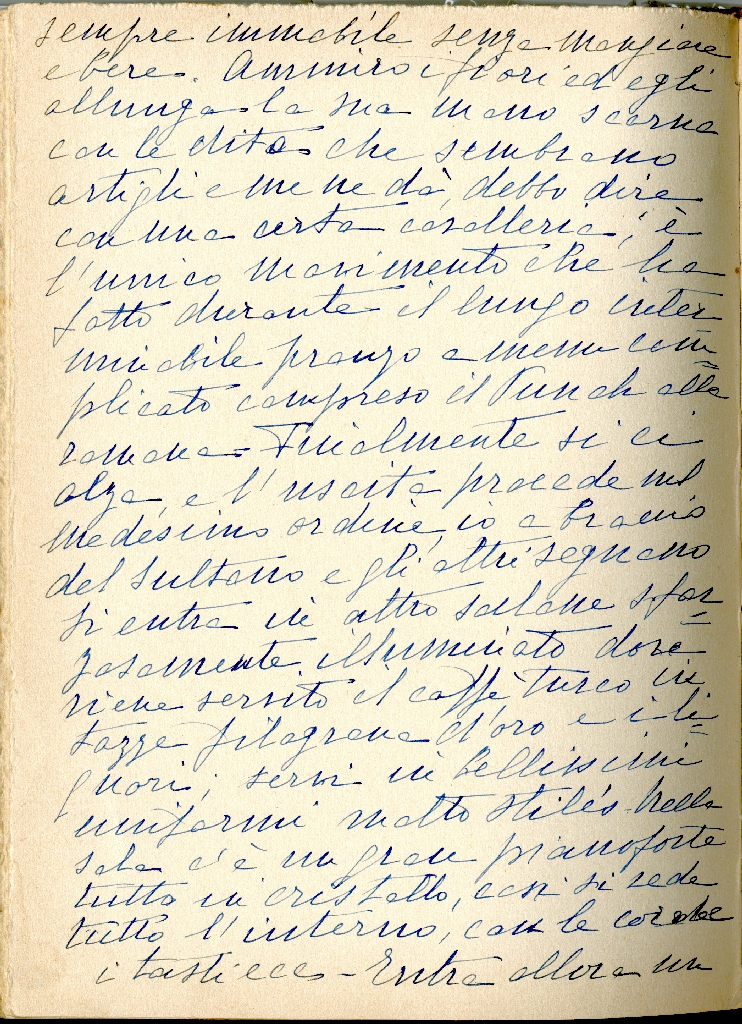 sempre immobile senza mangiare
e bere. Ammiro i fiori ed egli
allunga la sua mano scarna
con le dita che sembrano
artigli e me ne dà, debbo dire
con una certa cavalleria; è
l'unico movimento che ha
fatto durante il lungo inter
minabile pranzo a menu com=
plicato compreso il Punch alla
romana - Finalmente si ci
alza, e l'uscita procede nel
medesimo ordine, io a braccio
del Sultano e gli altri seguono
si entra in altro salone sfar=
zosamente illuminato dove
viene servito il caffè turco in
tazze filograna d'oro e i li=
quori; servi in bellissimi
uniformi molto stilés. Nella
sala c'è un gran pianoforte
tutto in cristallo, così si vede
tutto l'interno, con le corde
i tasti ecc - Entra allora un